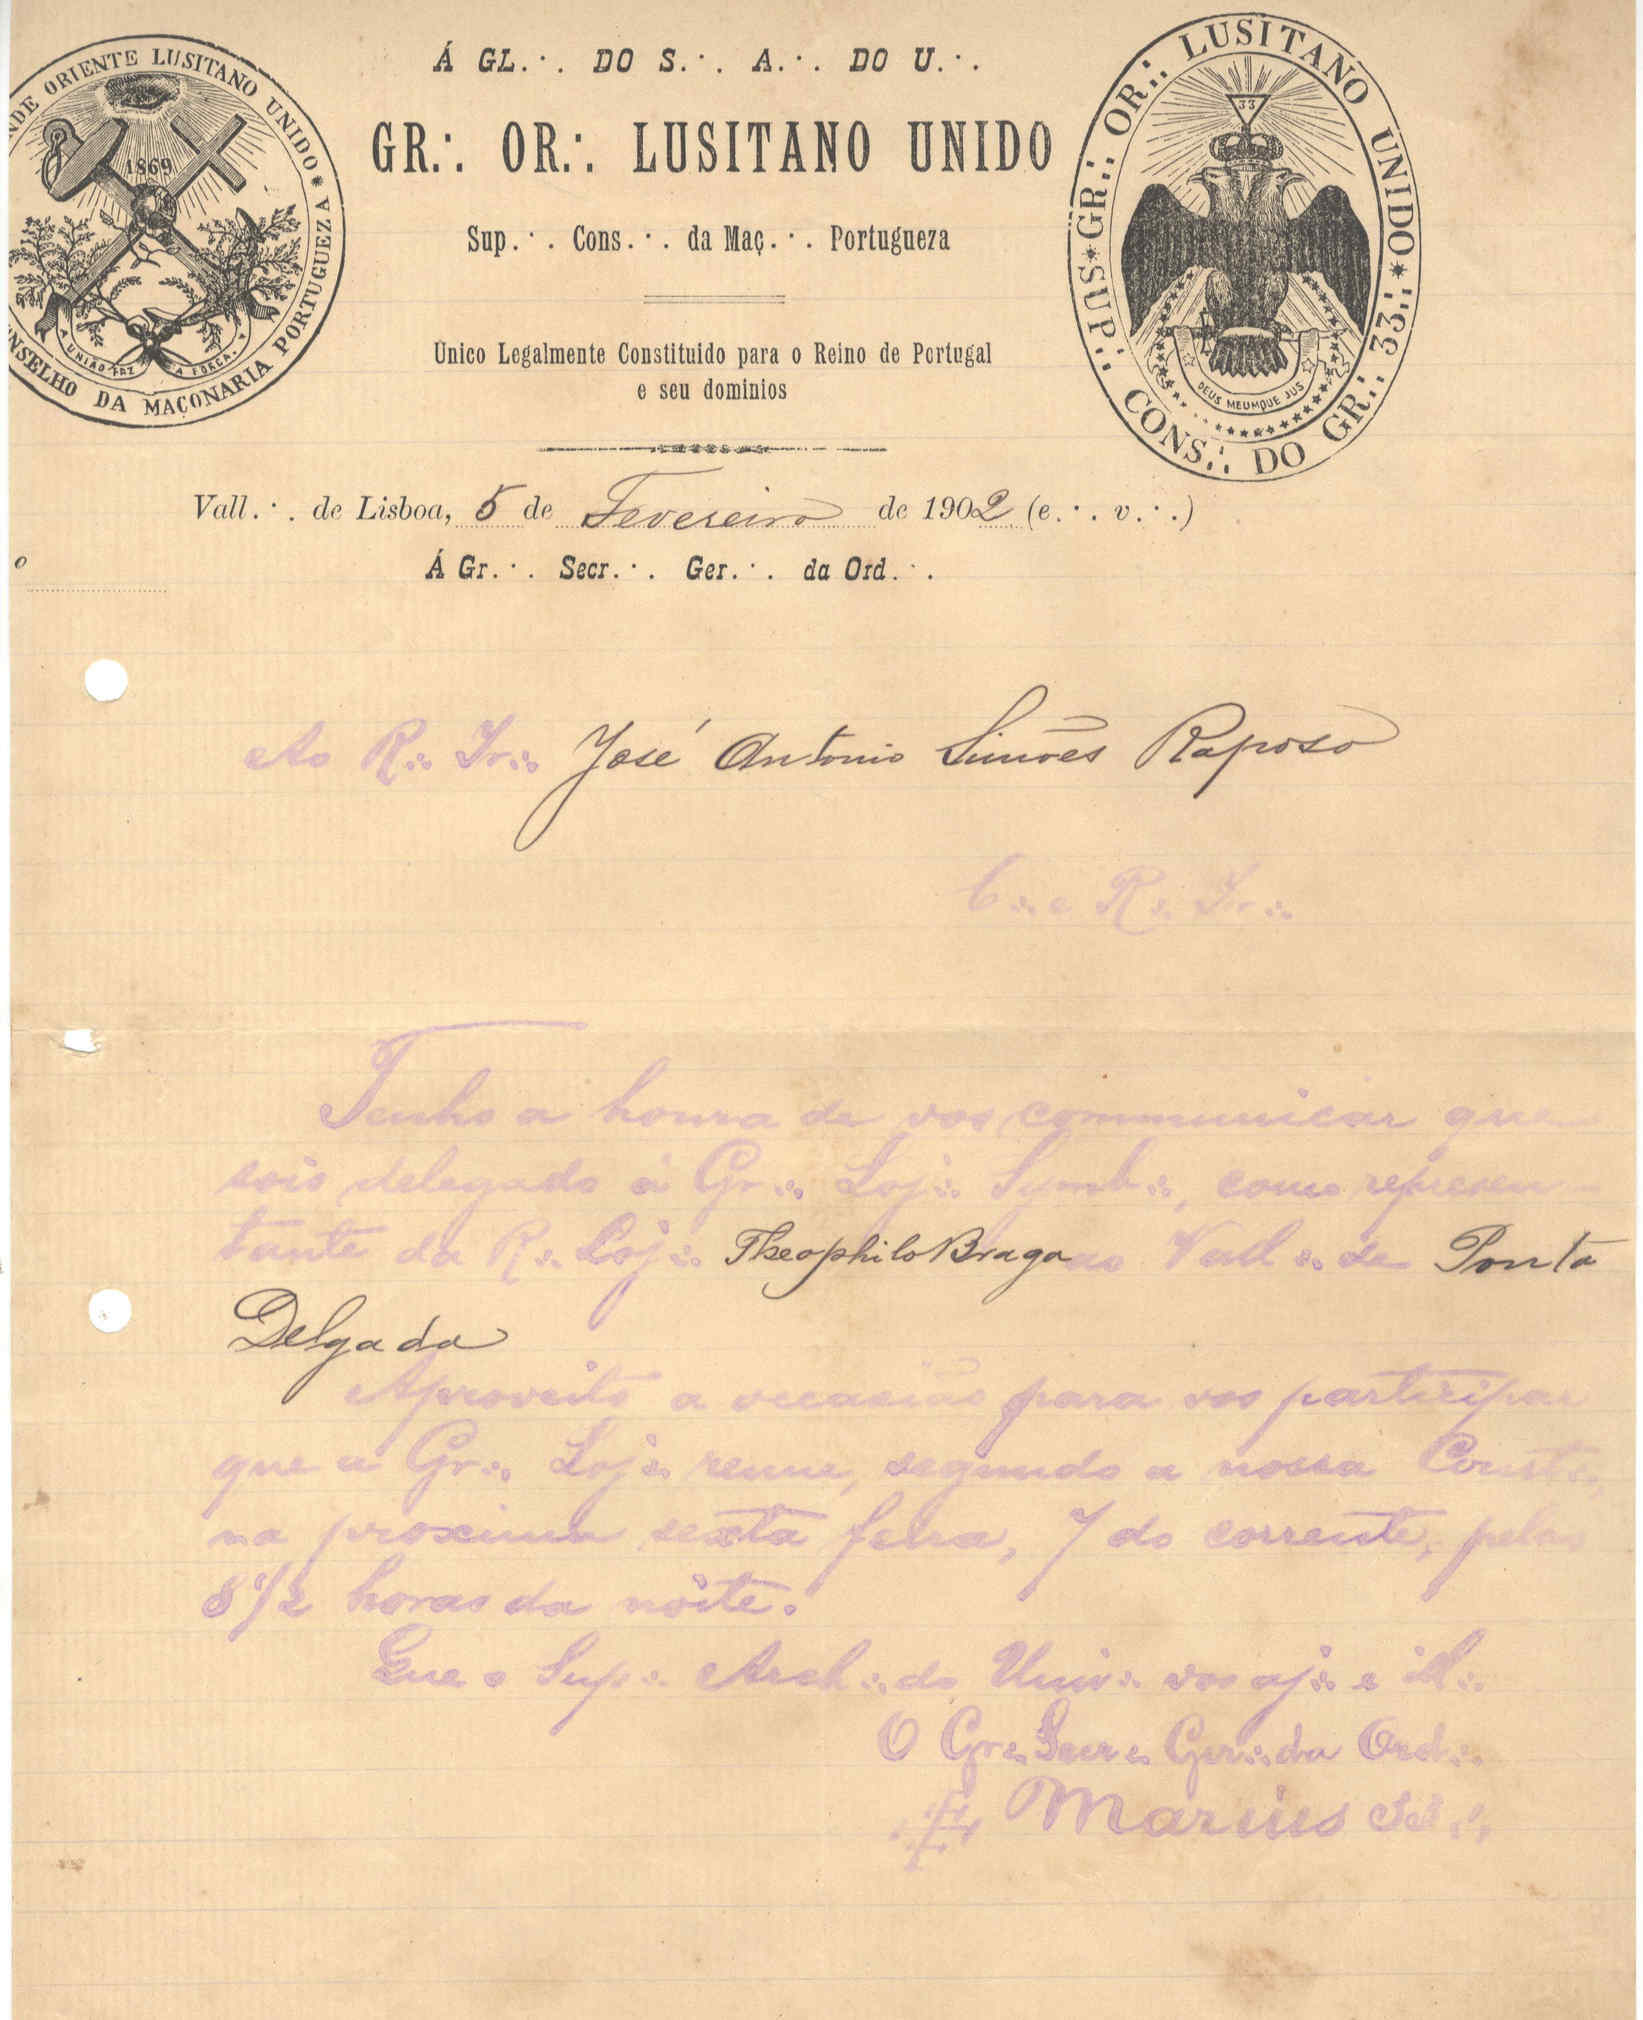 NDE ORIENTE LUSITANO UNIDO * NSELHO DA MAÇONARIA PORTUGUEZA
1869
A UNIÃO FAZ A FORÇA
Á GL.·. DO S.·. A.·. DO U.·.
GR.·. OR.·. LUSITANO UNIDO
Sup.·. Cons.·. da Maç.·. Portugueza
Unico Legalmente Constituido para o Reino de Portugal
e seu dominios
SUP.·. CONS.·. DO GR.·. 33.·. * GR.·. OR.·. LUSITANO UNIDO *
33
DEUS MEUMQUE JUS
Vall.·. de Lisboa, 5 de Fevereiro de 1902 (e.·. v.·.)
o
Á Gr.·. Secr.·. Ger.·. da Ord.·.
Ao R.·. Ir.·. José Antonio Simões Raposo
C.·. e R.·. Ir.·.
Tenho a honra de vos communicar que
sois delegado á Gr.·. Loj.·. Symb.·., como represen-
tante da R.·. Loj.·. Theophilo Braga ao Vall.·. de Ponta
Delgada
Aproveito a occasião para vos participar
que a Gr.·. Loj.·. reune, segundo a nossa Const.·.
na proxima sexta feira, 7 do corrente, pelas
8 1/2 horas da noite.
Que o Sup.·. Arch.·. do Univ.·. vos aj.·. e ill.·.
O Gr.·. Secr.·. Ger.·. da Ord.·.
Marius